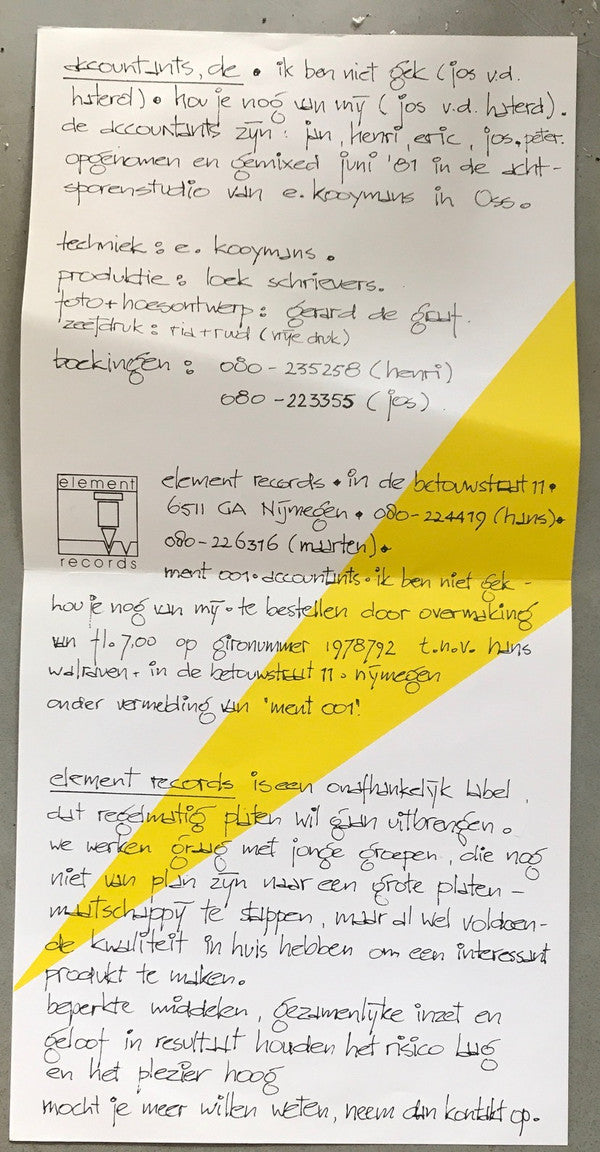 accountants, de • ik ben niet gek (jos v.d.
haterd) • hou je nog van mij (jos v.d. haterd).
de accountants zijn: jan, henri, eric, jos, peter.
opgenomen en gemixed juni '81 in de acht-
sporenstudio van e. kooymans in Oss.
techniek: e. kooymans.
produktie: loek schrievers.
foto + hoesontwerp: gerard de grauf.
zeefdruk: ria + ruud (vrije druk)
boekingen: 080-235258 (henri)
080-223355 (jos)
element
records
element records • in de betouwstraat 11 •
6511 GA Nijmegen • 080-224419 (hans) •
080-226316 (maarten) •
ment 001 • accountants • ik ben niet gek -
hou je nog van mij • te bestellen door overmaking
van fl. 7,00 op gironummer 1978792 t.n.v. hans
walraven • in de betouwstraat 11 • nijmegen
onder vermelding van 'ment 001'.
element records is een onafhankelijk label,
dat regelmatig platen wil gaan uitbrengen.
we werken graag met jonge groepen, die nog
niet van plan zijn naar een grote platen-
maatschappij te stappen, maar al wel voldoen-
de kwaliteit in huis hebben om een interessant
produkt te maken.
beperkte middelen, gezamenlijke inzet en
geloof in resultaat houden het risico laag
en het plezier hoog
mocht je meer willen weten, neem dan kontakt op.